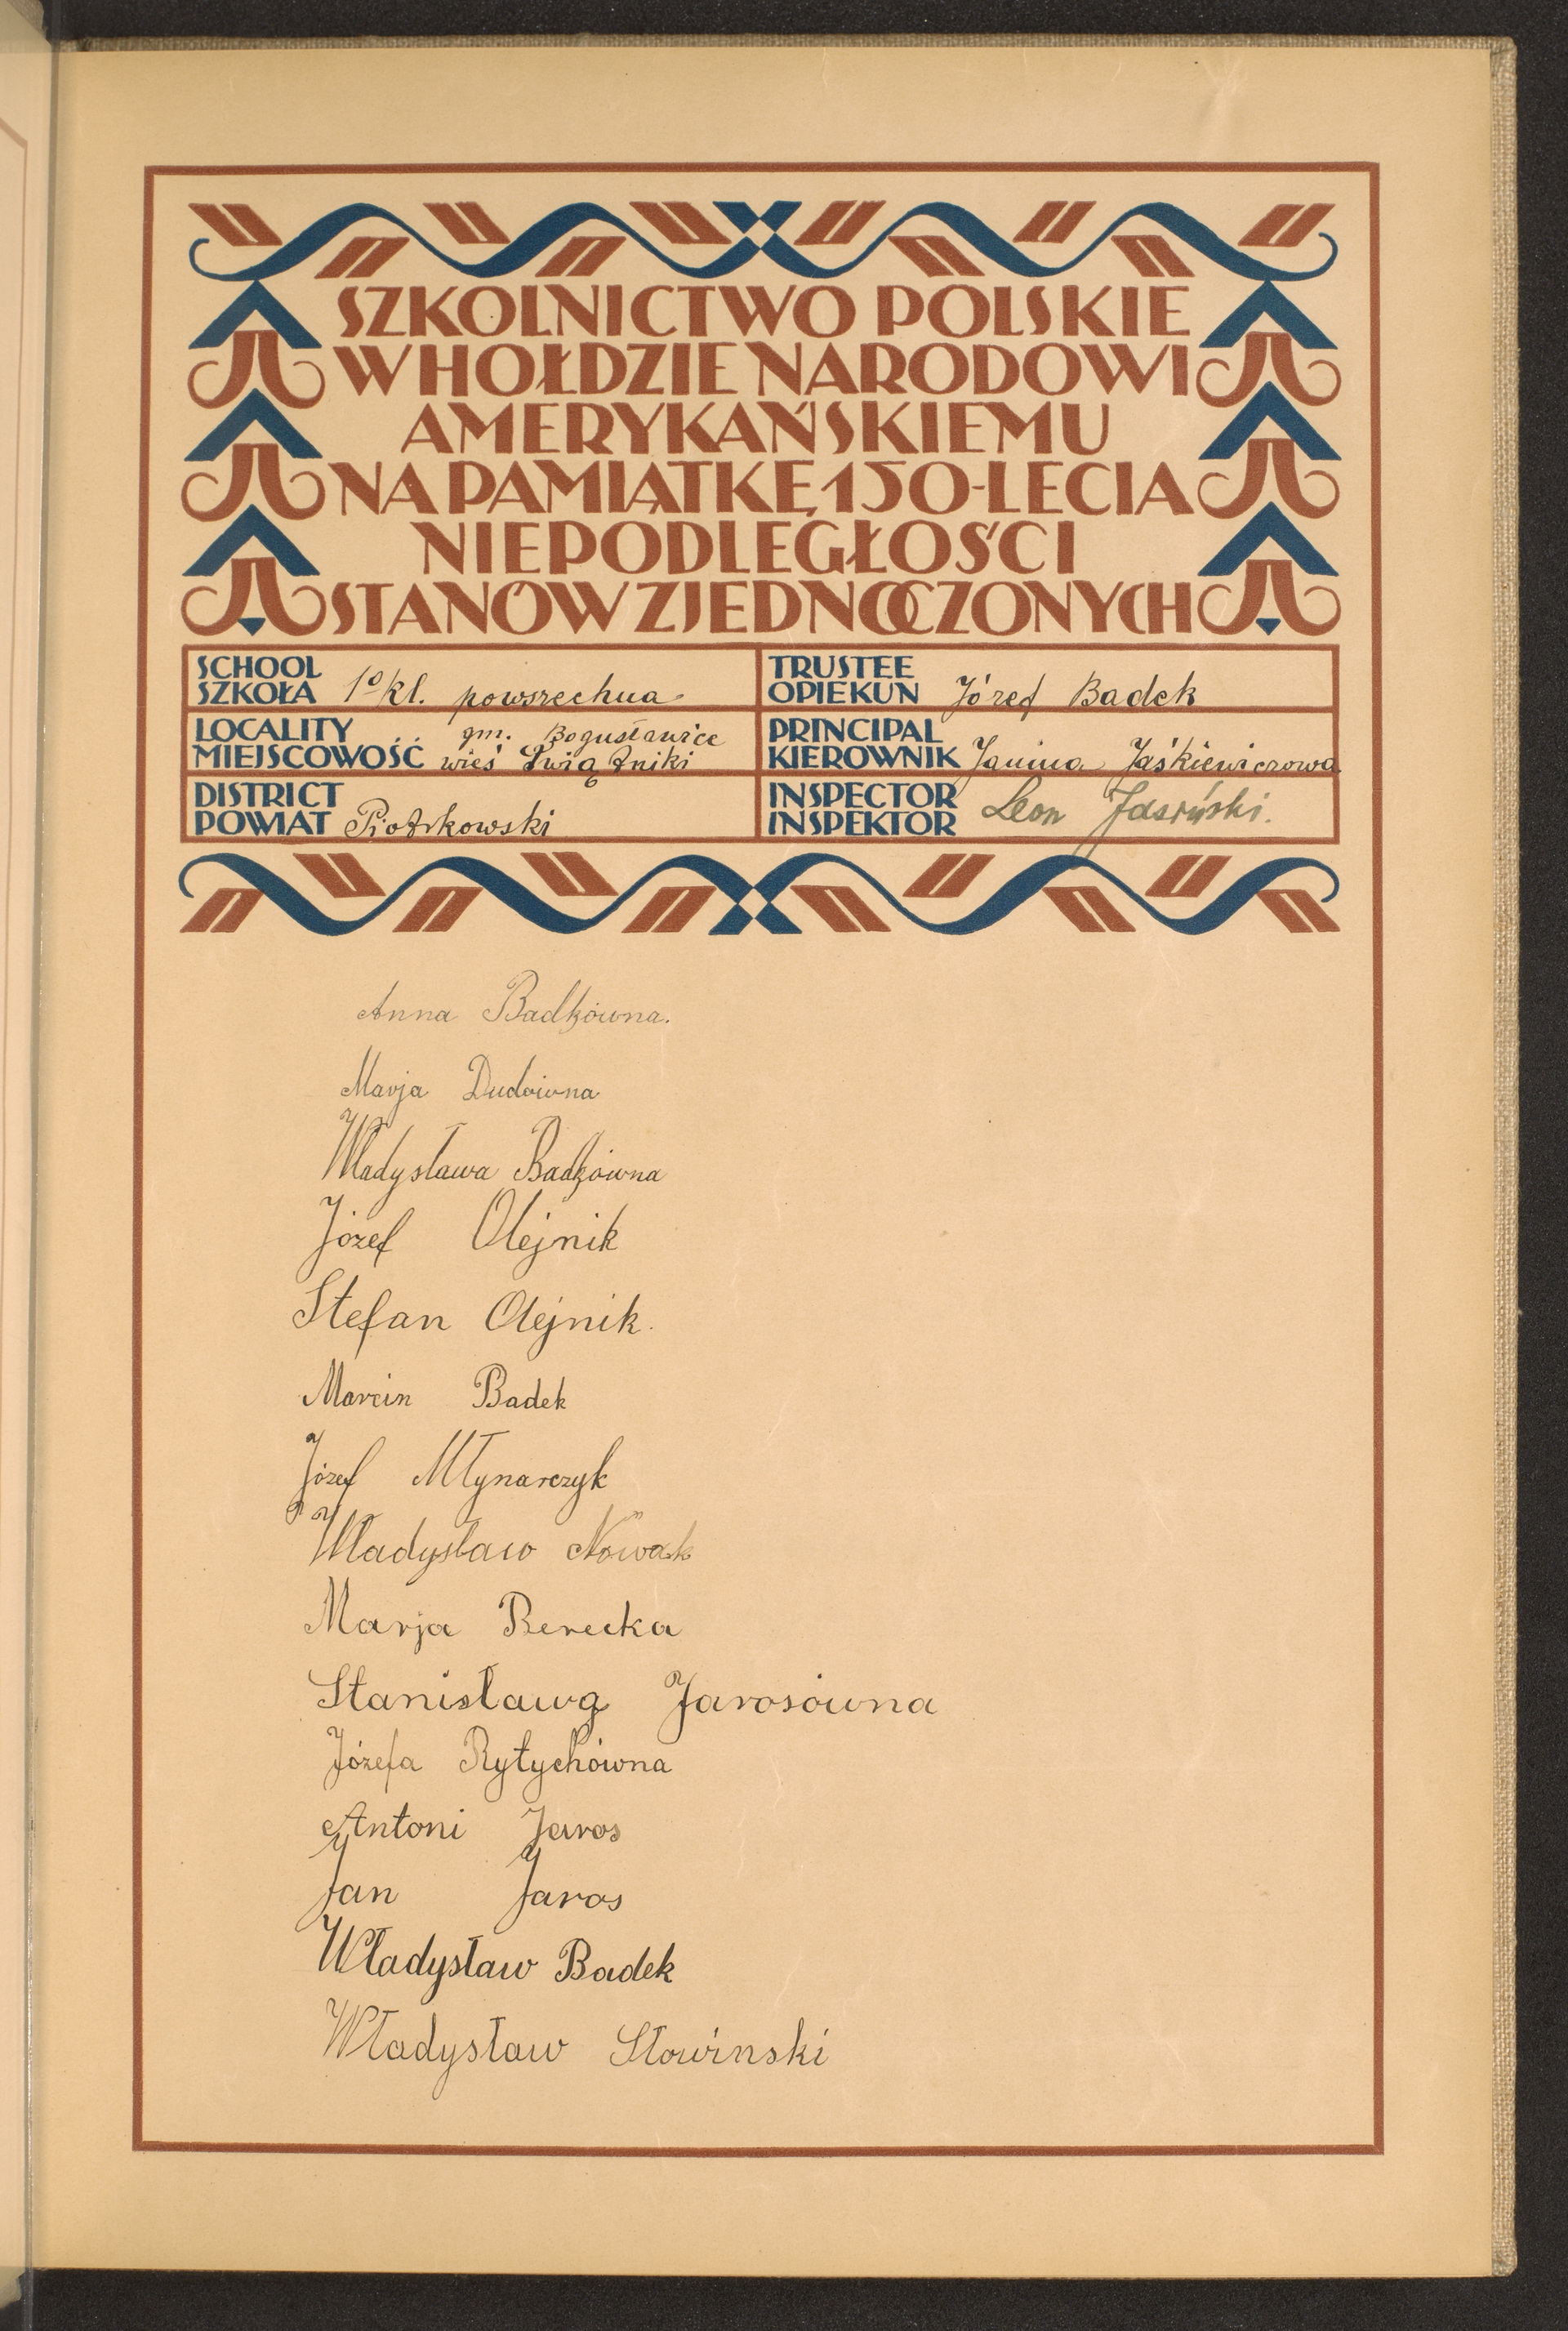 SZKOLNICTWO POLSKIE
W HOŁDZIE NARODOWI
AMERYKAŃSKIEMU
NA PAMIĄTKĘ 150-LECIA
NIEPODLEGŁOŚCI
STANÓW ZJEDNOCZONYCH
SCHOOL
SZKOŁA 1º kl. powszechna
TRUSTEE
OPIEKUN Józef Badek
LOCALITY gm. Bogusławice
MIEJSCOWOŚĆ wieś Świątniki
PRINCIPAL
KIEROWNIK Janina Jaśkiewiczowa
DISTRICT
POWIAT Piotrkowski
INSPECTOR
INSPEKTOR Leon
Anna Badkówna.
Marja Dudówna
Władysława Badkówna
Józef Olejnik
Stefan Olejnik.
Marcin Badek
Józef Młynarczyk
Władysław Nowak
Marja Berecka
Stanisława Jarosówna
Józefa Rytychówna
Antoni Jaros
Jan Jaros
Władysław Badek
Władysław Słowinski